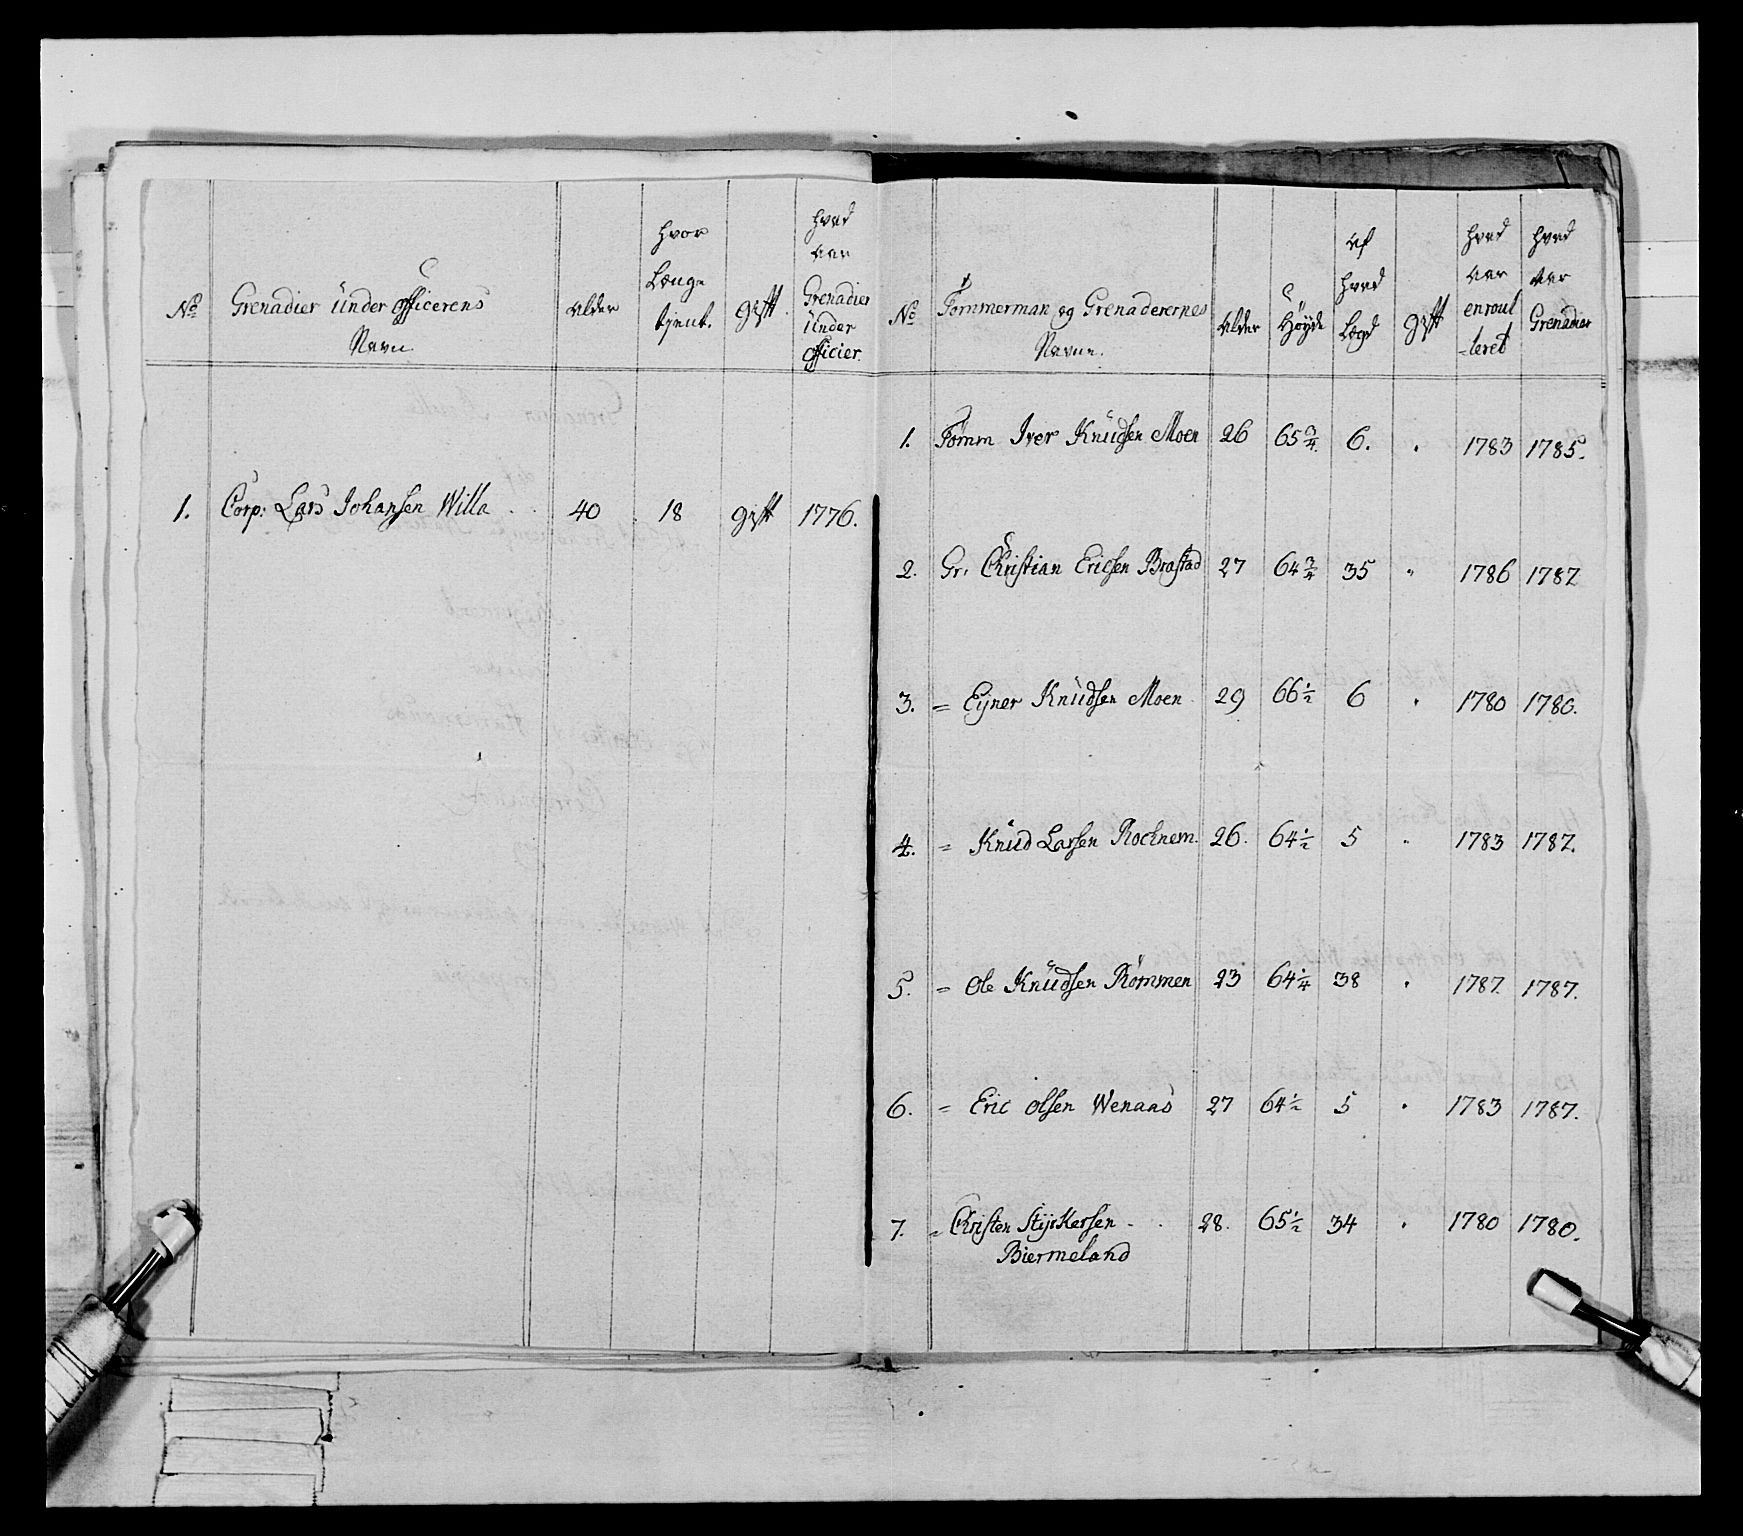 No Grenadier Under Officerens Navn Alder hvor Længe tient. gift hvad Aar Grenadier Under officier.
1. Corp: Lars Johansen Willa 40 18 gift 1776.
No Tømmerman og Grenaderernes Navne. Alder Høyde af hvad Lægd gift hvad Aar enroulleret hvad Aar Grenadier
1. Tømm Iver Knudsen Moen 26 65 3/4. 6. " 1783 1785.
2. Gr: Christian Ericsen Brastad 27 64 3/4 35 " 1786 1787
3. = Eyner Knudsen Moen 29 66 1/2 6 " 1780 1780.
4. = Knud Larsen Rochnem. 26. 64 1/2 5 " 1783 1787.
5. = Ole Knudsen Rømmen 23 64 1/4 38 " 1787. 1787.
6. = Eric olsen Wenaas 27 64 1/2 5 " 1783 1787.
7. = Christen Styrkersen - . 28. 65 1/2 34 " 1780 1780.
Biermeland